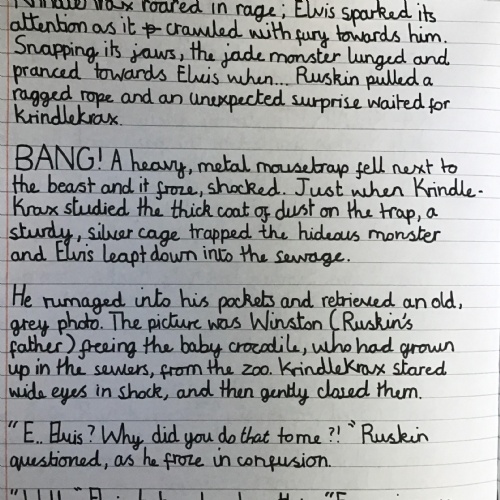 Krindle Krax roared in rage; Elvis sparked its
attention as it crawled with fury towards him.
Snapping its jaws, the jade monster lunged and
pranced towards Elvis when... Ruskin pulled a
ragged rope and an unexpected surprise waited for
Krindlekrax.
BANG! A heavy, metal mousetrap fell next to
the beast and it froze, shocked. Just when Krindle-
Krax studied the thick coat of dust on the trap, a
sturdy, silver cage trapped the hideous monster
and Elvis leapt down into the sewage.
He rumaged into his pockets and retrieved an old,
grey photo. The picture was Winston (Ruskin's
father) freeing the baby crocodile, who had grown
up in the sewers, from the zoo. KrindleKrax stared
wide eyes in shock, and then gently closed them.
"E.. Elvis? Why did you do that to me?!" Ruskin
questioned, as he froze in confusion.